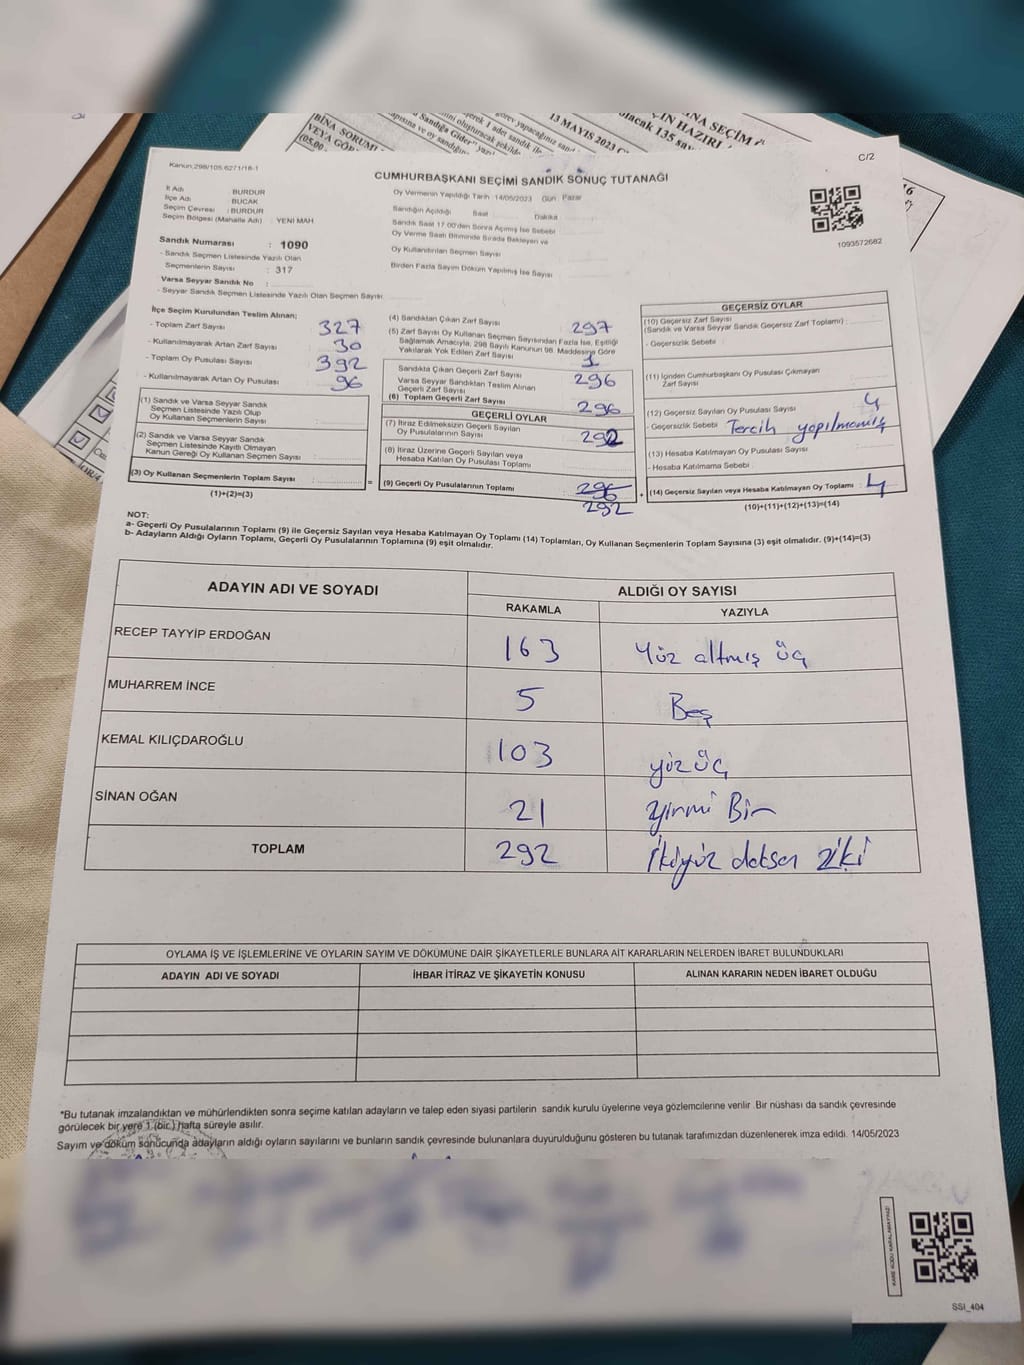 BİNA SORUML
VEYA GÖR
(05.00
13 MAYIS 2023 C
C/2
Kanun:298/105.6271/18-1
CUMHURBAŞKANI SEÇİMİ SANDIK SONUÇ TUTANAĞI
İl Adı : BURDUR
İlçe Adı : BUCAK
Seçim Çevresi : BURDUR
Seçim Bölgesi (Mahalle Adı) : YENİ MAH
Oy Vermenin Yapıldığı Tarih 14/05/2023 Gün : Pazar
Sandığın Açıldığı Saat Dakika
Sandık Saat 17.00'den Sonra Açılmış İse Sebebi
Oy Verme Saati Bitiminde Sırada Bekleyen ve
Oy Kullandırılan Seçmen Sayısı
Birden Fazla Sayım Döküm Yapılmış İse Sayısı
1093572682
Sandık Numarası : 1090
- Sandık Seçmen Listesinde Yazılı Olan
Seçmenlerin Sayısı : 317
Varsa Seyyar Sandık No :
- Seyyar Sandık Seçmen Listesinde Yazılı Olan Seçmen Sayısı:
İlçe Seçim Kurulundan Teslim Alınan;
- Toplam Zarf Sayısı 327
- Kullanılmayarak Artan Zarf Sayısı 30
- Toplam Oy Pusulası Sayısı 392
- Kullanılmayarak Artan Oy Pusulası 96
(1) Sandık ve Varsa Seyyar Sandık
Seçmen Listesinde Yazılı Olup
Oy Kullanan Seçmenlerin Sayısı :
(2) Sandık ve Varsa Seyyar Sandık
Seçmen Listesinde Kayıtlı Olmayan
Kanun Gereği Oy Kullanan Seçmen Sayısı :
(3) Oy Kullanan Seçmenlerin Toplam Sayısı :
(1)+(2)=(3)
(4) Sandıktan Çıkan Zarf Sayısı 297
(5) Zarf Sayısı Oy Kullanan Seçmen Sayısından Fazla İse, Eşitliği
Sağlamak Amacıyla, 298 Sayılı Kanunun 98. Maddesine Göre
Yakılarak Yok Edilen Zarf Sayısı 1
Sandıkta Çıkan Geçerli Zarf Sayısı 296
Varsa Seyyar Sandıktan Teslim Alınan
Geçerli Zarf Sayısı
(6) Toplam Geçerli Zarf Sayısı 296
GEÇERLİ OYLAR
(7) İtiraz Edilmeksizin Geçerli Sayılan
Oy Pusulalarının Sayısı : 292
(8) İtiraz Üzerine Geçerli Sayılan veya
Hesaba Katılan Oy Pusulası Toplamı :
= (9) Geçerli Oy Pusulalarının Toplamı : 296
292
GEÇERSİZ OYLAR
(10) Geçersiz Zarf Sayısı
(Sandık ve Varsa Seyyar Sandık Geçersiz Zarf Toplamı) :
- Geçersizlik Sebebi :
(11) İçinden Cumhurbaşkanı Oy Pusulası Çıkmayan
Zarf Sayısı
(12) Geçersiz Sayılan Oy Pusulası Sayısı 4
- Geçersizlik Sebebi Tercih yapılmamış
(13) Hesaba Katılmayan Oy Pusulası Sayısı
- Hesaba Katılmama Sebebi :
+ (14) Geçersiz Sayılan veya Hesaba Katılmayan Oy Toplamı : 4
(10)+(11)+(12)+(13)=(14)
NOT:
a- Geçerli Oy Pusulalarının Toplamı (9) ile Geçersiz Sayılan veya Hesaba Katılmayan Oy Toplamı (14) Toplamları, Oy Kullanan Seçmenlerin Toplam Sayısına (3) eşit olmalıdır. (9)+(14)=(3)
b- Adayların Aldığı Oyların Toplamı, Geçerli Oy Pusulalarının Toplamına (9) eşit olmalıdır.
ADAYIN ADI VE SOYADI ALDIĞI OY SAYISI
RAKAMLA YAZIYLA
RECEP TAYYİP ERDOĞAN 163 Yüz altmış üç
MUHARREM İNCE 5 Beş
KEMAL KILIÇDAROĞLU 103 yüz üç
SİNAN OĞAN 21 yirmi Bir
TOPLAM 292 İkiyüz doksan iki
OYLAMA İŞ VE İŞLEMLERİNE VE OYLARIN SAYIM VE DÖKÜMÜNE DAİR ŞİKAYETLERLE BUNLARA AİT KARARLARIN NELERDEN İBARET BULUNDUKLARI
ADAYIN ADI VE SOYADI İHBAR İTİRAZ VE ŞİKAYETİN KONUSU ALINAN KARARIN NEDEN İBARET OLDUĞU
*Bu tutanak imzalandıktan ve mühürlendikten sonra seçime katılan adayların ve talep eden siyasi partilerin sandık kurulu üyelerine veya gözlemcilerine verilir. Bir nüshası da sandık çevresinde
görülecek bir yere 1 (bir) hafta süreyle asılır.
Sayım ve döküm sonucunda adayların aldığı oyların sayılarını ve bunların sandık çevresinde bulunanlara duyurulduğunu gösteren bu tutanak tarafımızdan düzenlenerek imza edildi. 14/05/2023
KARE KODU KARALAMAYINIZ!
SSI_404